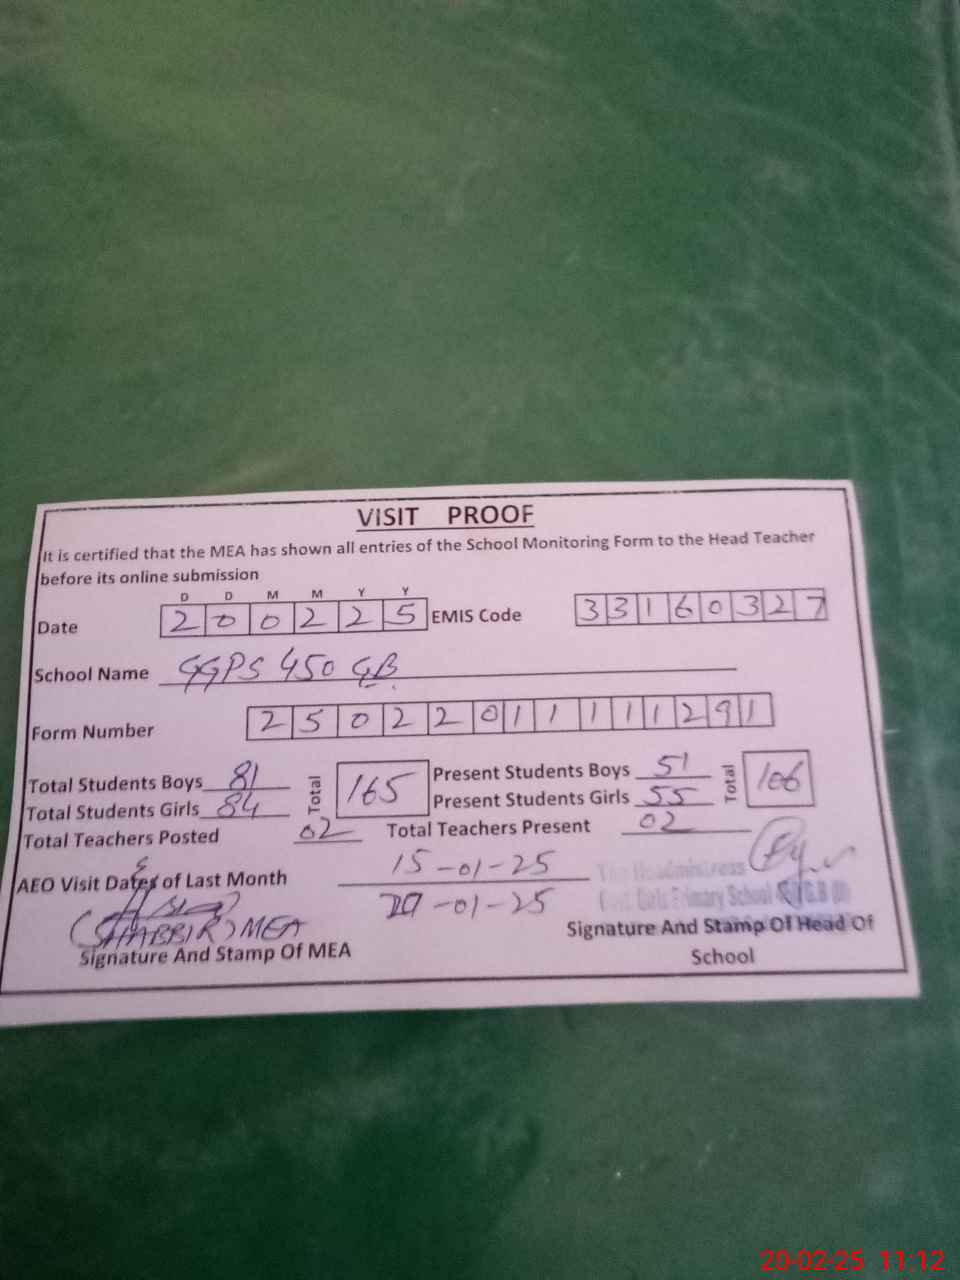 VISIT PROOF
It is certified that the MEA has shown all entries of the School Monitoring Form to the Head Teacher
before its online submission
D D M M Y Y
Date 2 0 0 2 2 5 EMIS Code 3 3 1 6 0 3 2 7
School Name GGPS 450 GB
Form Number 2 5 0 2 2 0 1 1 1 1 2 9 1
Total Students Boys 81 Total 165 Present Students Boys 51 Total 106
Total Students Girls 84 Present Students Girls 55
Total Teachers Posted 02 Total Teachers Present 02
AEO Visit Dates of Last Month 15-01-25
-01-25
The Headmistress
Govt Girls Primary School G.B
(SHABBIR) MEA
Signature And Stamp Of MEA
Signature And Stamp Of Head Of
School
20-02-25 11:12